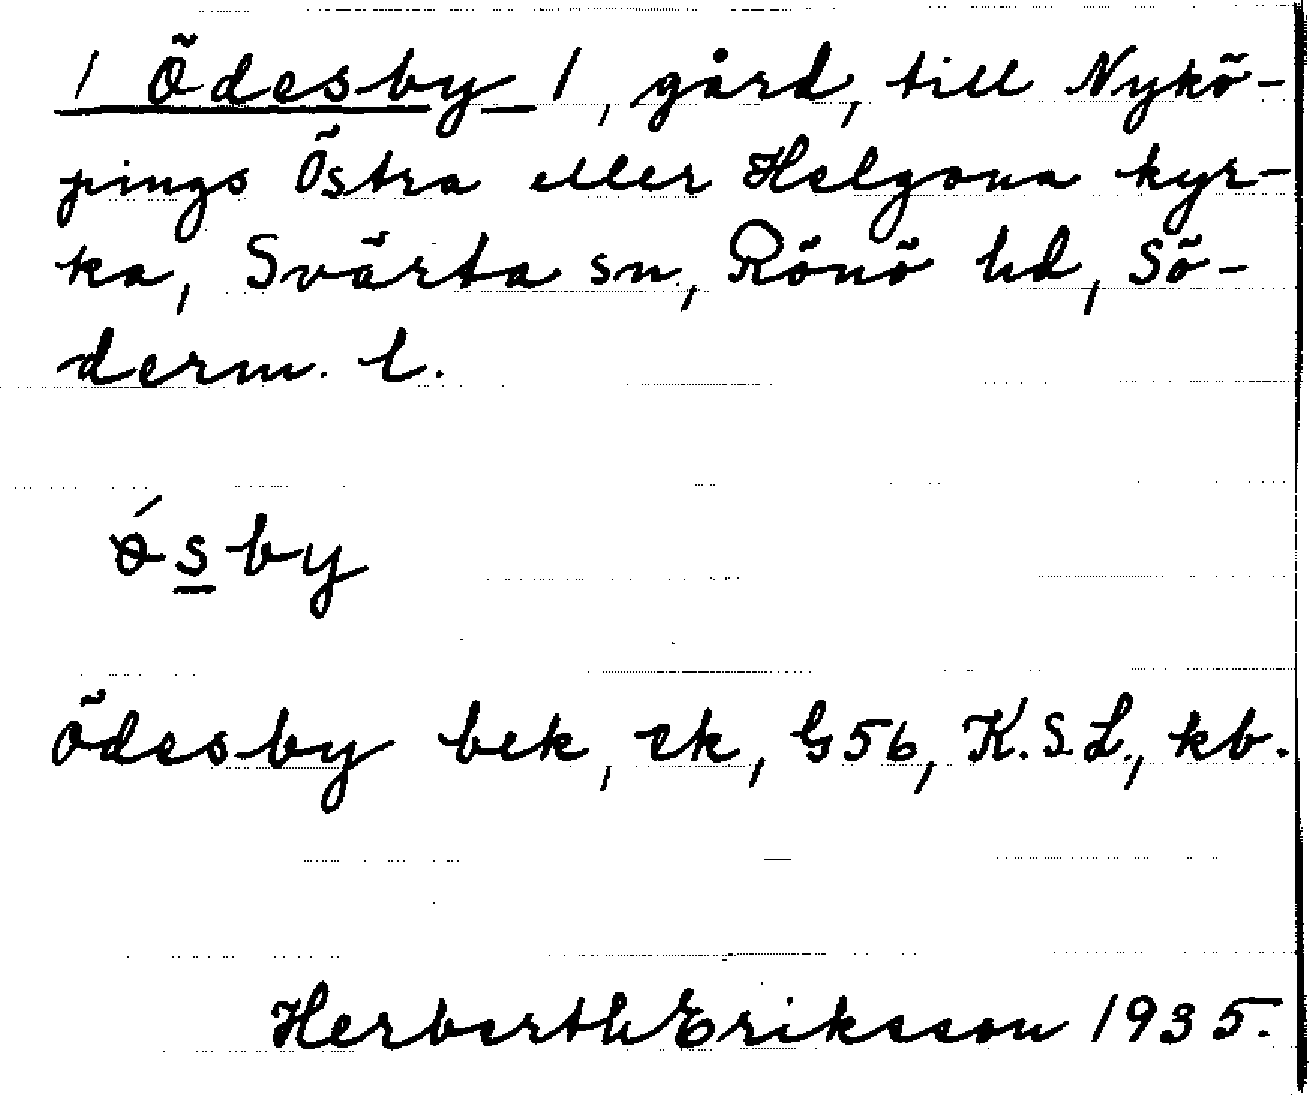 / Ödesby /, gård, till Nykö-
pings Östra eller Helgona kyr-
ka, Svärta sn, Rönö hd, Sö-
derm. l.
ǿsby
Ödesby bek, ek, G56, K.S.L., kb.
Herberth Eriksson 1935.